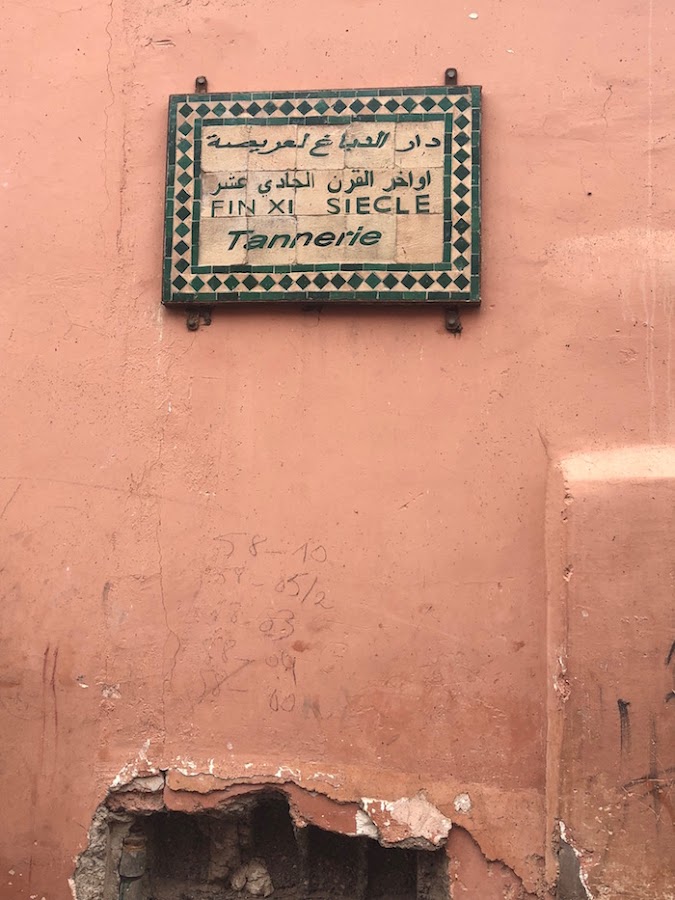 دار الدباغ لعريصة
اواخر القرن الحادي عشر
FIN XI SIECLE
Tannerie
58-10